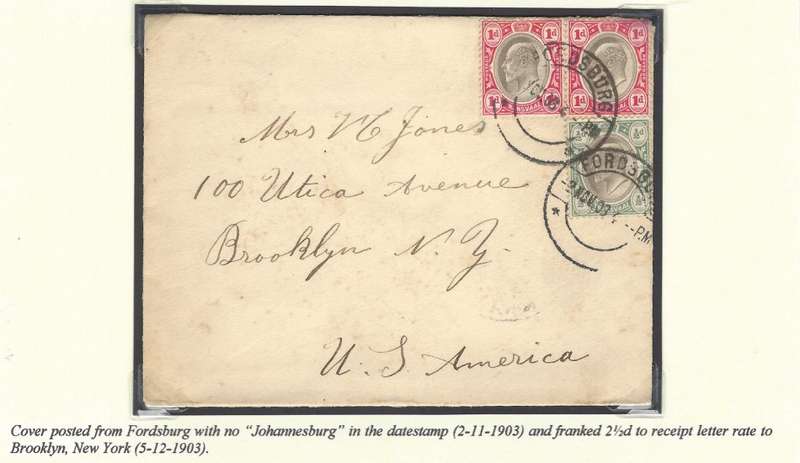 1d 1d 1d 1d
1d 1d
FORDSBURG
PM
Mrs W Jones
100 Utica Avenue
Brooklyn N.Y.
FORDSBURG
P.M
U.S. America
Cover posted from Fordsburg with no “Johannesburg” in the datestamp (2-11-1903) and franked 2½d to receipt letter rate to
Brooklyn, New York (5-12-1903).